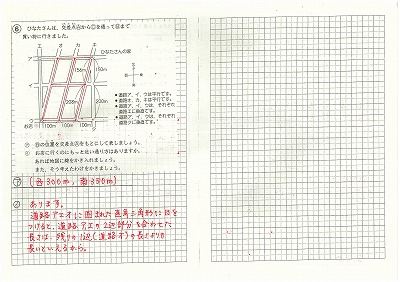 ⑥ ひなたさんは、交差点㋐から㋑を通って㋒まで
買い物に行きました。
エ オ カ キ
ひなたさんの家
ア
156m
150m
イ
208m
200m
ウ
お店
100m 100m 100m
北
● 道路ア、イ、ウは平行です。
● 道路オ、カ、キは平行です。
● 道路ア、イ、ウは、それぞれ
道路エに垂直です。
● 道路ア、イ、ウは、それぞれ
道路クに垂直です。
の位置を交差点をもとにして表しましょう。
お店に行くのにもっと近い通り方はありますか。
あれば地図に線をかき入れましょう。
また、そう考えたわけをかきましょう。
㋐ (西300m, 南350m)
㋑ あります。
道路アエオに囲まれた直角三角形に目を
つけると、道路アエの2辺部分を合わせた
長さは、残りの1辺(道路オ)の長さよりの
長いといえるから。